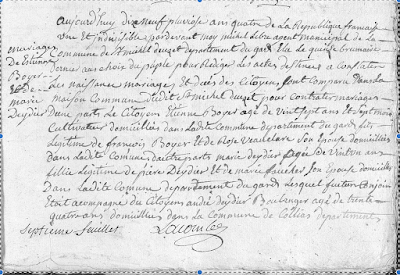 aujourd'huy dix neuf pluviose ans quatre de la Republique francaise
une et indivisible pardevant moy michel agent municipal de la
commune de St michel deuzet departement du gard Elu le quinze brumaire
dernier au choix du peuple pour Rediger les actes destinés a constater
les naissance mariages et Décès des Citoyens, sont comparu Dans la
maison Commune dudit St michel deuzet pour contrater mariages
D'une part Le Citoyens Etienne Boyer agé de vint sept ans et sept mois
Cultivateur domicilliés dans ladite Commune departement du gard fils
Légitime de françois Boyer et de Rose son Epouse domicilliés
Dans ladite Commune d'autre parts marie deydier agée de vint un an
fillie Legitime de pierre Deydier et de marie faucher son Epouse domicilliés
Dans ladite Comune departement du gards Lesquel futur conjoin
Etoit acompagné du Citoyens andré deydier Boulenger agé de trente
quatre ans domicilliés dans la Commune de Collias departement
mariages
De Etienne
Boyer
Et de
marie
Deydier
Septieme feuillet